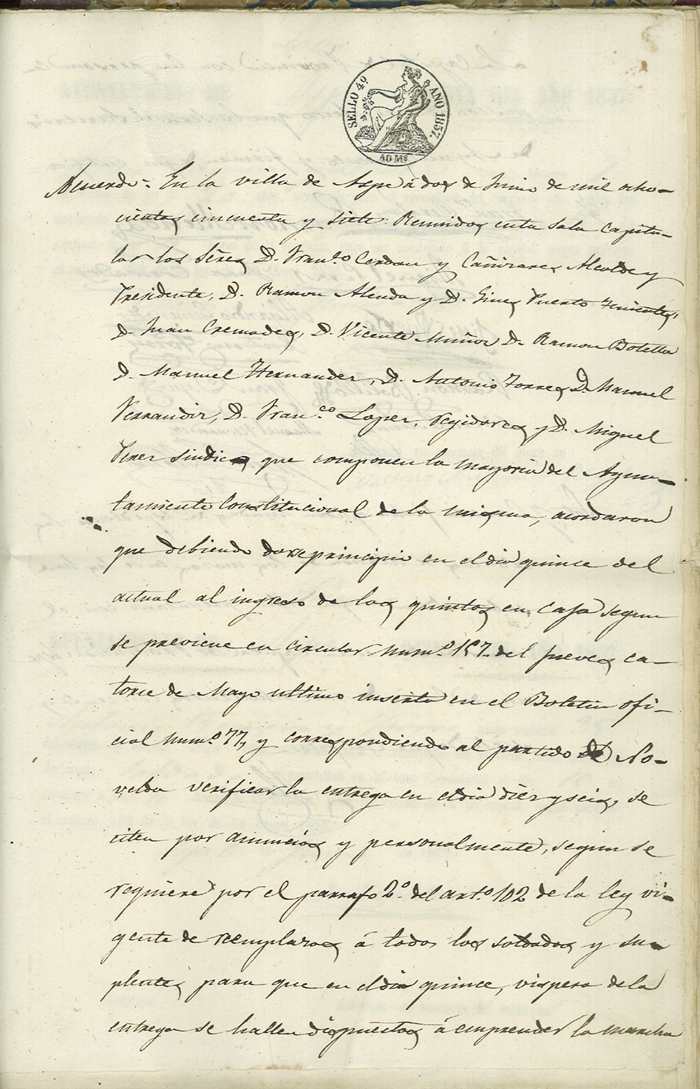 SELLO 4º AÑO 1857.
40 Ms
Acuerdo. En la villa de Aspe á dos de Junio de mil ocho-
cientos cincuenta y siete: Reunidos en la Sala Capitu-
lar los Señes D. Franco Cerdan y Cañizares Alcalde y
Presidente, D. Ramon Alenda y D. Gines Puerto Tenientes,
D. Juan Cremades, D. Vicente Muñoz D. Ramon Botella
D. Manuel Hernandez, D. Antonio Torres D. Manuel
Ferrandiz, D. Franco Lopez, regidores y D. Miguel
Pérez sindico que componen la mayoria del Ayun-
tamiento Constitucional de la misma, acordaron
que debiendo darse principio en el dia quince del
actual al ingreso de los quintos en Caja segun
se previene en circular numº 157. del jueves ca-
torce de Mayo ultimo inserta en el Boletin ofi-
cial numº 77, y correspondiendo al partido de No-
velda verificar la entrega en el dia diez y seis, se
citen por anuncios y personalmente, segun se
requiere por el parrafo 2º del artº 102 de la ley vi-
gente de reemplazos á todos los soldados y su-
plentes para que en el dia quince, vispera de la
entrega se hallen dispuestos á emprender la marcha